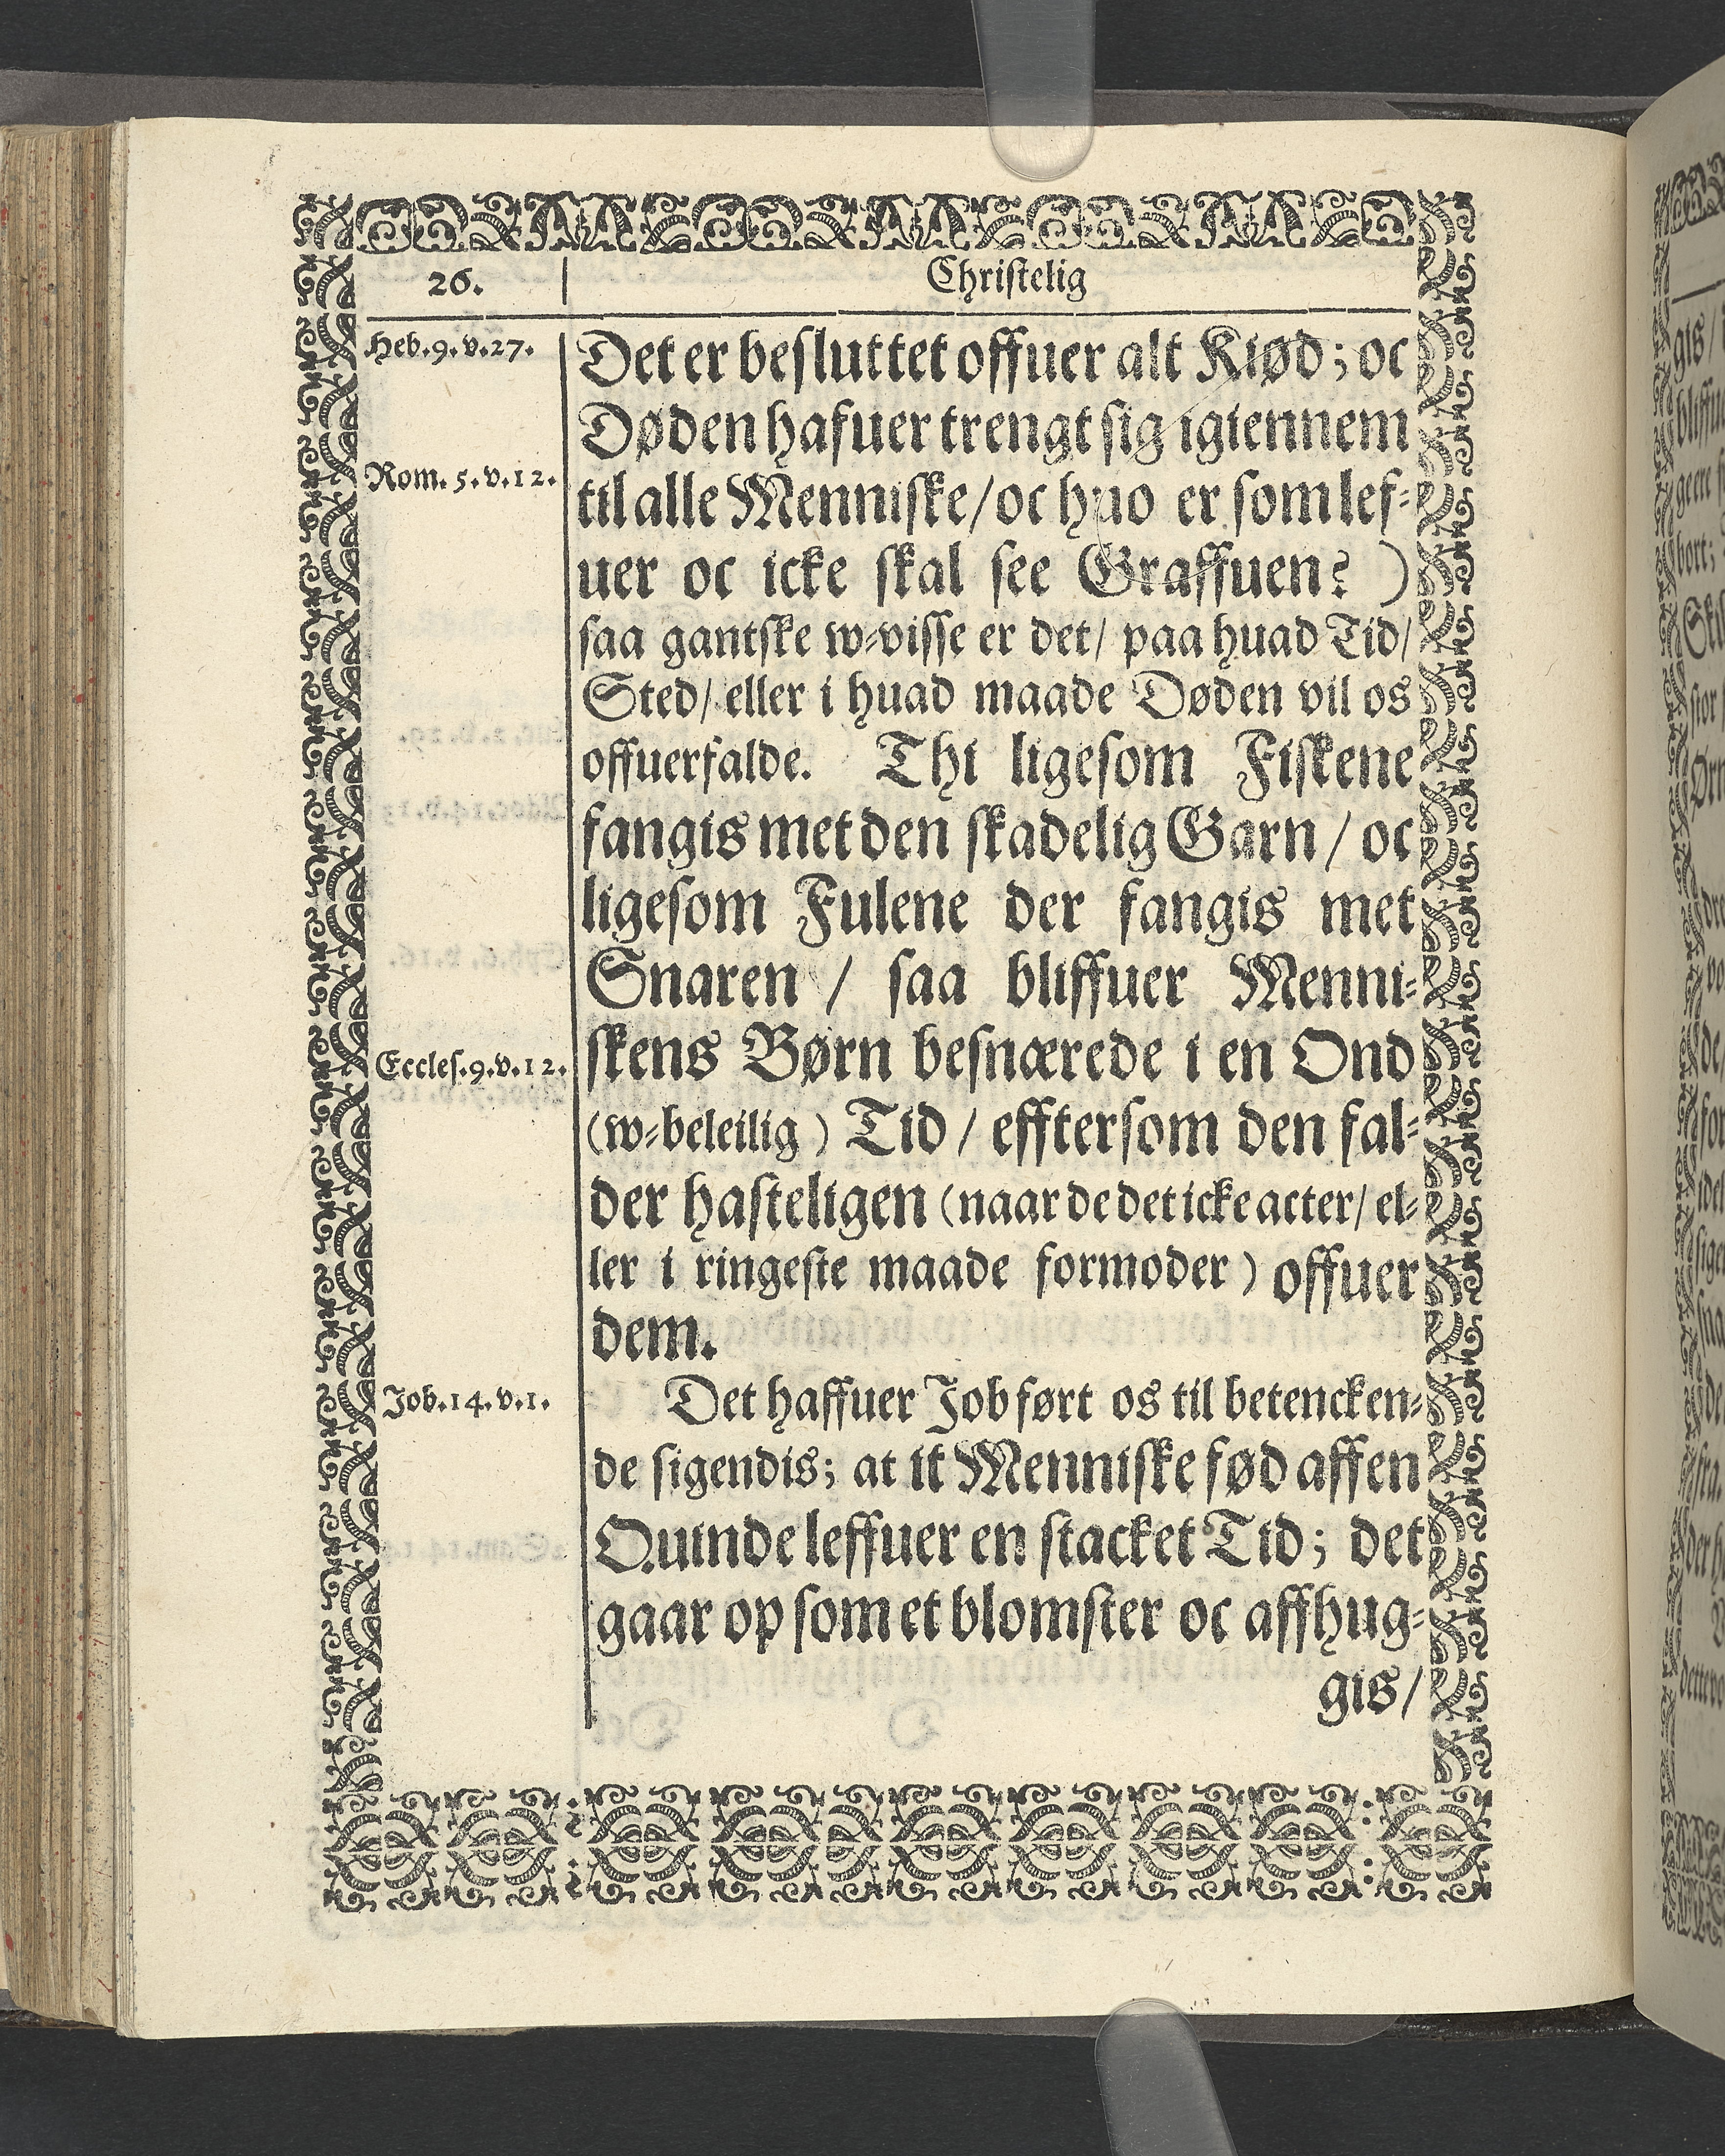 26.
Christelig
Heb.9.v.27.
Det er besluttet offuer alt Kiød; oc
Døden hafuer trengt sig igiennem
Rom.5.v.12.
til alle Menniske/ oc huo er som lef-
uer oc icke skal see Graffuen? )
saa gantske w-visse er det/ paa huad Tid/
Sted/ eller i huad maade Døden vil os
offuerfalde. Thi ligesom Fiskene
fangis met den skadelig Garn / oc
ligesom Fulene der fangis met
Snaren / saa bliffuer Menni-
Eccles.9.v.12.
skens Børn besnærede i en Ond
(w-beleilig) Tid / efftersom den fal-
der hasteligen (naar de det icke acter/ el-
ler i ringeste maade formoder) offuer
dem.
Job.14.v.1.
Det haffuer Job ført os til betencken-
de sigendis; at it Menniske fød aff en
Quinde leffuer en stacket Tid; det
gaar op som et blomster oc affhug-
gis/